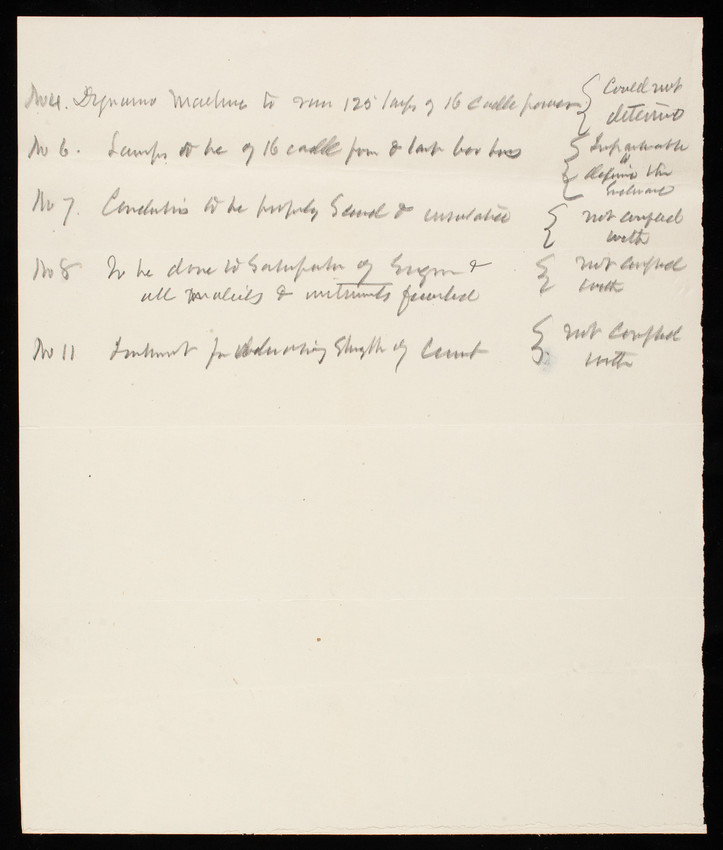 No 4. Dynamo Machine to run 125 lamps of 16 candle power { Could not
determine
No 6. Lamps to be of 16 candle power & last 600 hours {
define the
No 7. Conductors to be properly secured & insulated { not complied
with
No 8 To be done to Satisfaction of Engineer & { not complied
all materials & instruments furnished with
No 11 Instrument for measuring Strength of Current { not complied
with